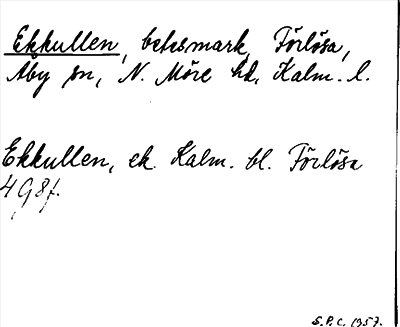 Ekkullen, betesmark, Förlösa,
Åby sn, N. Möre hd, Kalm. l.
Ekkullen, ek. Kalm. bl. Förlösa
4 G 8 f.
S.P.C. 1957.